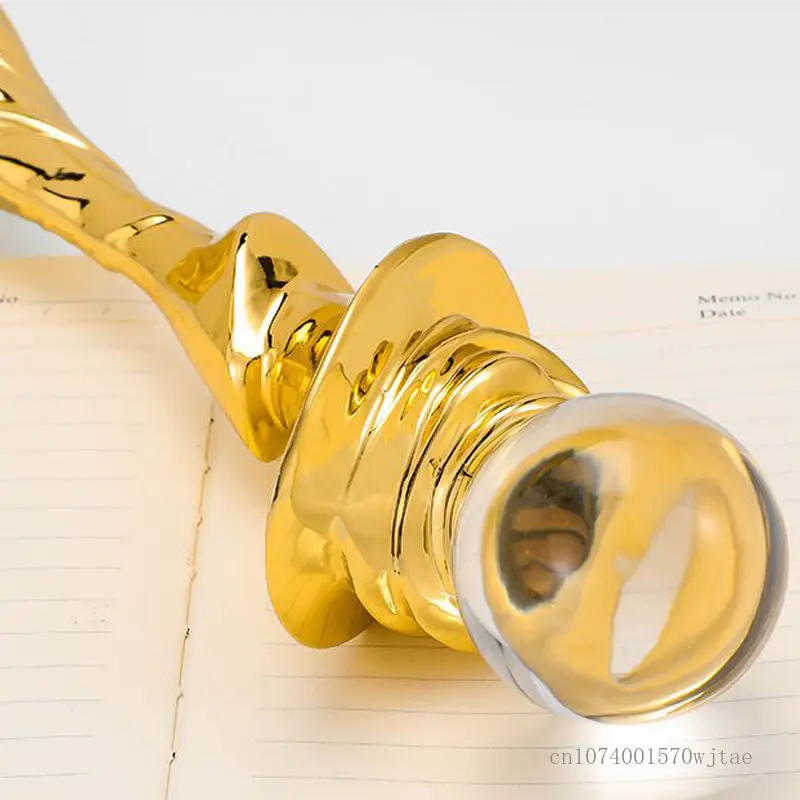 No.
Memo No.
Date
cn1074001570wjtae